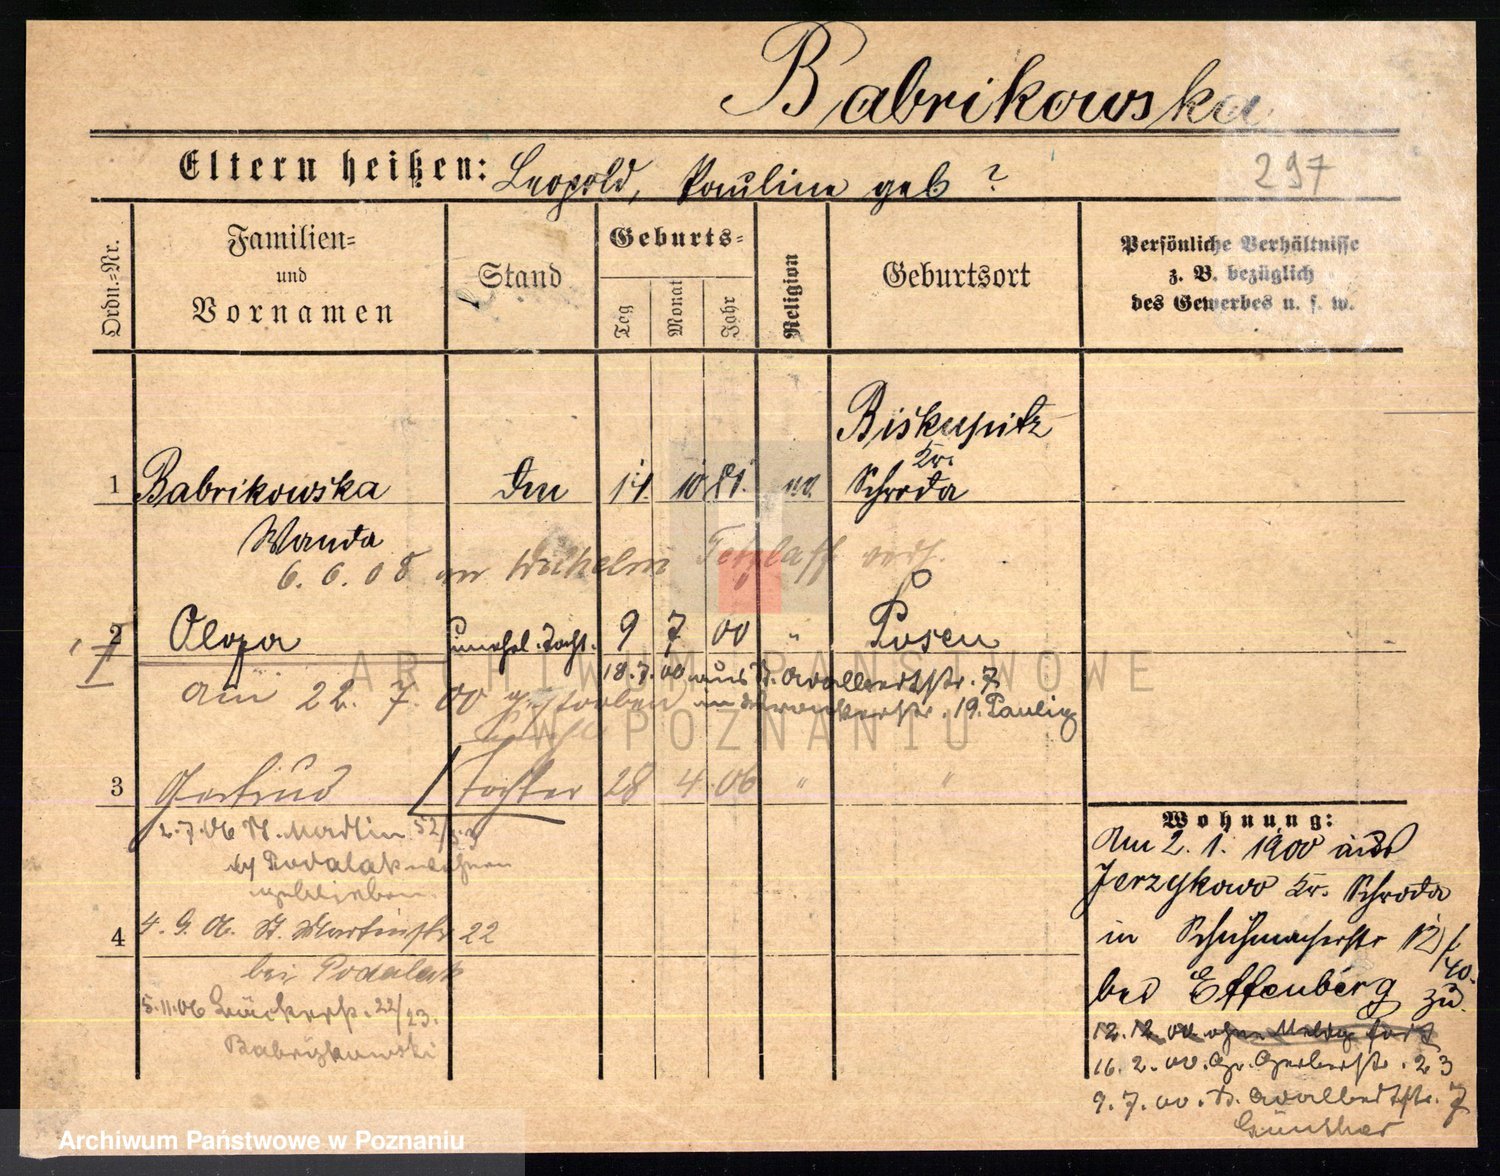 Babrikowska
297
Eltern heißen: Leopold, Pauline geb ?
Ordn.=Nr.
Familien=
und
Vornamen
Stand
Geburts=
Tag
Monat
Jahr
Religion
Geburtsort
Persönliche Verhältnisse
z. B. bezüglich
des Gewerbes u. s. w.
Biskupitz
Kr.
1 Babrikowska 14. 10 81. Schroda
Wanda
6. 6. 08 an Wilhelm Tetzlaff verh.
2 Olga unehel. Tocht. 9 7 00 " Posen
18.7.00 aus St. Adalbertstr. 7
am 22. 7. 00 gestorben 19. Paulig
3 Gertrud Tochter 28 4 06 " "
2.7.06 St. Martin 52/53
bei Podalak wohnen
geblieben.
4 4. 9. 06. St. Martinstr 22
bei Podalak
5.11.06 Bäckerstr. 22/23.
Babrikowski
Wohnung:
Am 2. 1. 1900 aus
Jerzykowo Kr. Schroda
in Schuhmacherstr 12/
bei Effenberg zu.
12. 12. 00 ohne Meldg fort
16. 2. 00. Gr. Gerberstr. 23
9. 7. 00. St. Adalbertstr. 7
Günther
ARCHIWUM PAŃSTWOWE
W POZNANIU
Archiwum Państwowe w Poznaniu